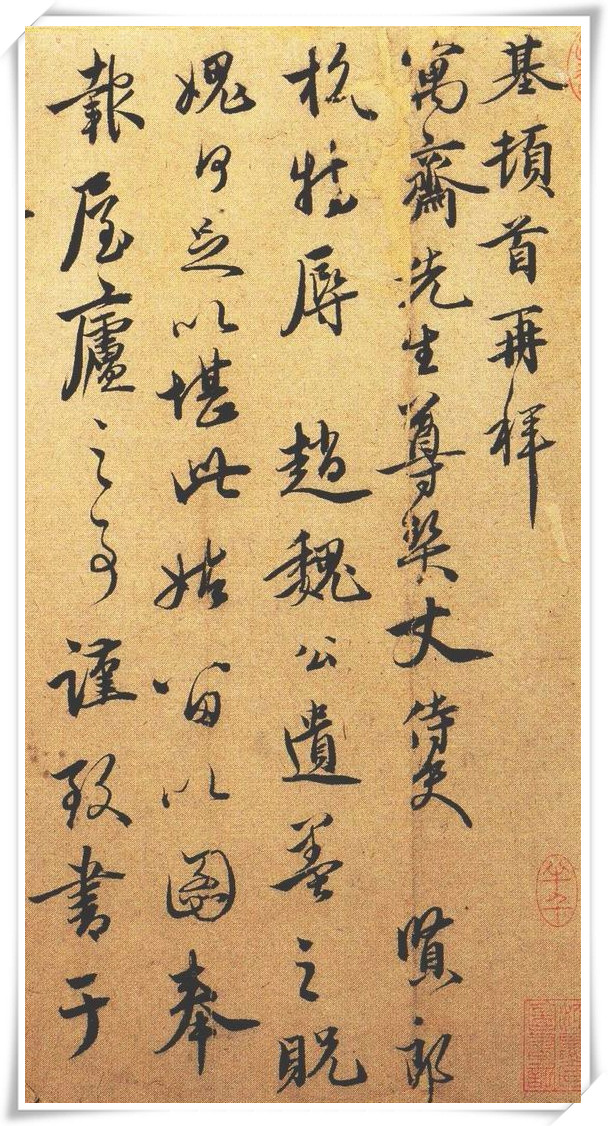 基頓首再拜
寓齋先生尊契丈侍史 賢郎
杭特辱 趙魏公遺墨之貺
媿何足以堪此姑留以圖奉
報屋廬之事謹致書于